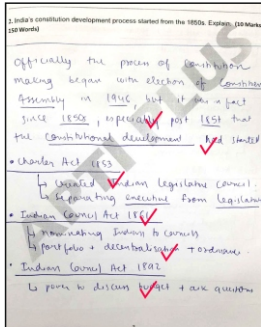 1. India's constitution development process started from the 1850s. Explain. (10 Marks
150 Words)
Officially the process of constitution
making began with election of Constituent
Assembly in 1946, but it is a fact
since 1850s, especially post 1857 that
the constitutional development had started
• Charter Act 1853
↳ Created Indian legislative council.
↳ Separating executive from legislature
• Indian Council Act 1861
↳ nominating Indians to councils
↳ portfolio + decentralisation + ordinance
• Indian Council Act 1892
↳ power to discuss budget + ask questions